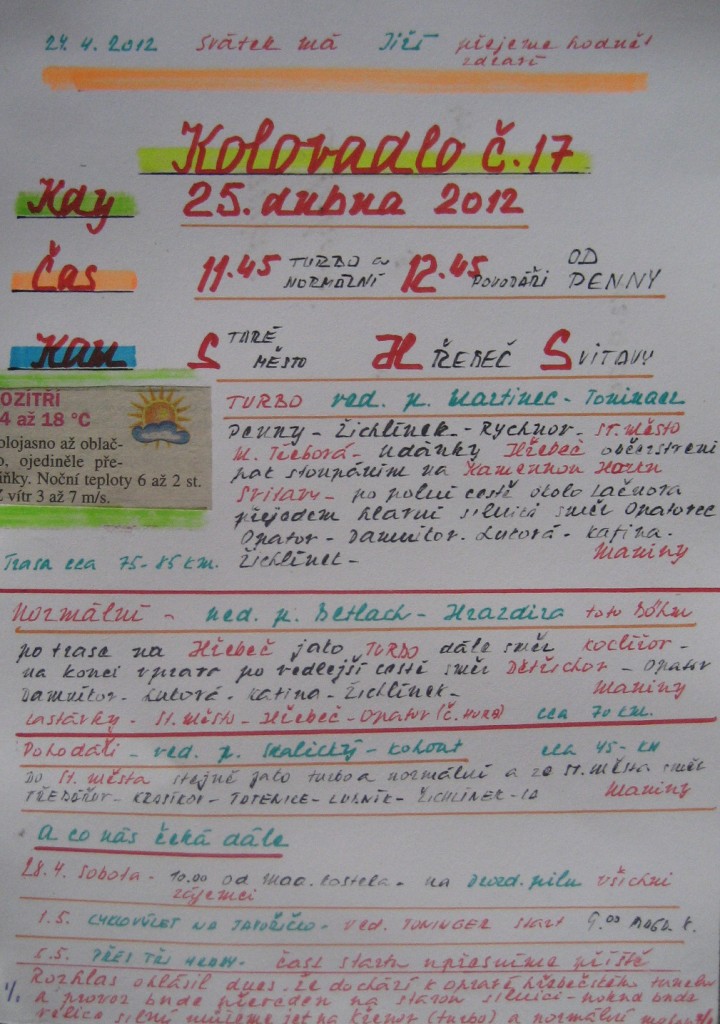 24. 4. 2012 Svátek má Jiří přejeme hodně
zdraví
Kolovadlo č. 17
Kdy 25. dubna 2012
Čas 11.45 TURBO a NORMÁLNÍ 12.45 POHODÁŘI OD PENNY
Kam STARÉ MĚSTO HŘEBEČ SVITAVY
OZITŘÍ
4 až 18 °C
olojasno až oblač-
o, ojediněle pře-
ňky. Noční teploty 6 až 2 st.
vítr 3 až 7 m/s.
TURBO ved. p. Martinec - Toninger
Penny - Žichlínek - Rychnov - St. město
M. Třebová - Udánky Hřebeč občerstvení
pak stoupáním na Kamennou Horku
Svitavy - po polní cestě okolo Lačnova
přejedem hlavní silnici směr Opatovec
Opatov - Damníkov. Luková - Rafina.
Žichlínek - Maniny
Trasa cca 75-85 km.
Normální - ved. p. Betlach - Hrazdira toto Böhm
po trase na Hřebeč jako TURBO dále směr Koclířov -
na konci vpravo po vedlejší cestě směr Dětřichov - Opatov
Damníkov - Luková - Rafina - Žichlínek - Maniny
Lastávky - St. město - Hřebeč - Opatov (č. TURBO) cca 70 km.
Pohodáři - ved. p. Skalický - Kohout cca 45 - km
Do St. města stejně jako turbo a normální a ze St. města směr
TŘEBAŘOV - KRASÍKOV - TATENICE - LUBNÍK - ŽICHLÍNEK - Maniny
A co nás čeká dále
28.4. sobota - 10.00 od mag. kostela - na Drozd. pilu všichni
zájemci
1.5. CYKLOVÝLET NA JAVOŘÍČKO - ved. TONINGER start 9.00 MAGD. K.
5.5. PŘES TŘI HRADY - čas startu upřesníme příště
Rozhlas ohlásil dnes, že dochází k opravě hřebečského tunelu
a provoz bude převeden na starou silnici - pokud bude
velice silný můžeme jet na Křenov (turbo) a normální